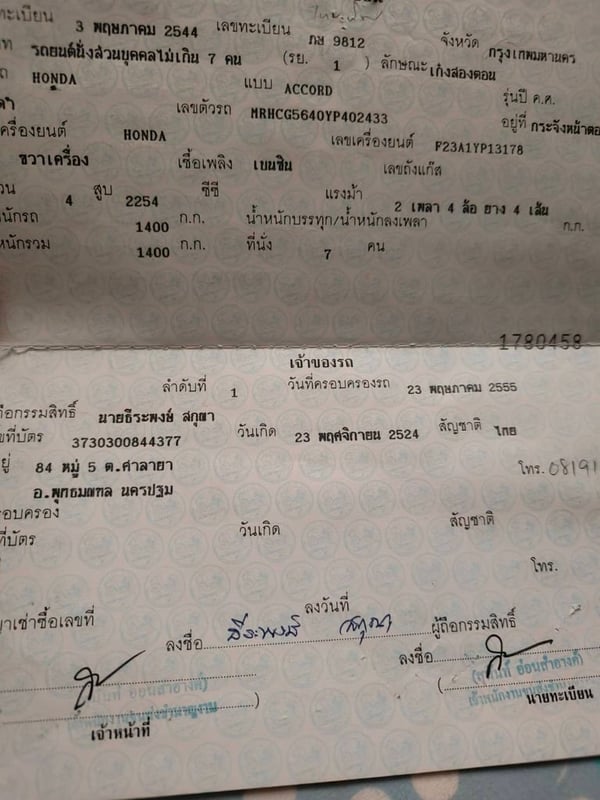 ทะเบียน 3 พฤษภาคม 2544 เลขทะเบียน ภษ 9812 จังหวัด กรุงเทพมหานคร
รถยนต์นั่งส่วนบุคคลไม่เกิน 7 คน (รย. 1 ) ลักษณะ เก๋งสองตอน
HONDA แบบ ACCORD รุ่นปี ค.ศ.
เลขตัวรถ MRHCG5640YP402433 อยู่ที่ กระจังหน้าตอ
ครื่องยนต์ HONDA เลขเครื่องยนต์ F23A1YP13178
ขวาเครื่อง เชื้อเพลิง เบนซิน เลขถังแก๊ส
4 สูบ 2254 ซีซี แรงม้า 2 เพลา 4 ล้อ ยาง 4 เส้น
หนักรถ 1400 ก.ก. น้ำหนักบรรทุก/น้ำหนักลงเพลา ก.ก.
หนักรวม 1400 ก.ก. ที่นั่ง 7 คน
1780458
เจ้าของรถ
ลำดับที่ 1 วันที่ครอบครองรถ 23 พฤษภาคม 2555
ถือกรรมสิทธิ์ นายธีระพงษ์ สกุณา
ขที่บัตร 3730300844377 วันเกิด 23 พฤศจิกายน 2524 สัญชาติ ไทย
ยู่ 84 หมู่ 5 ต.ศาลายา โทร. 08191
อ.พุทธมณฑล นครปฐม
รอบครอง
ที่บัตร วันเกิด สัญชาติ
โทร.
ญาเช่าซื้อเลขที่ ลงวันที่
ลงชื่อ ธีระพงษ์ สกุณา ผู้ถือกรรมสิทธิ์
ลงชื่อ
( )
เจ้าหน้าที่ นายทะเบียน